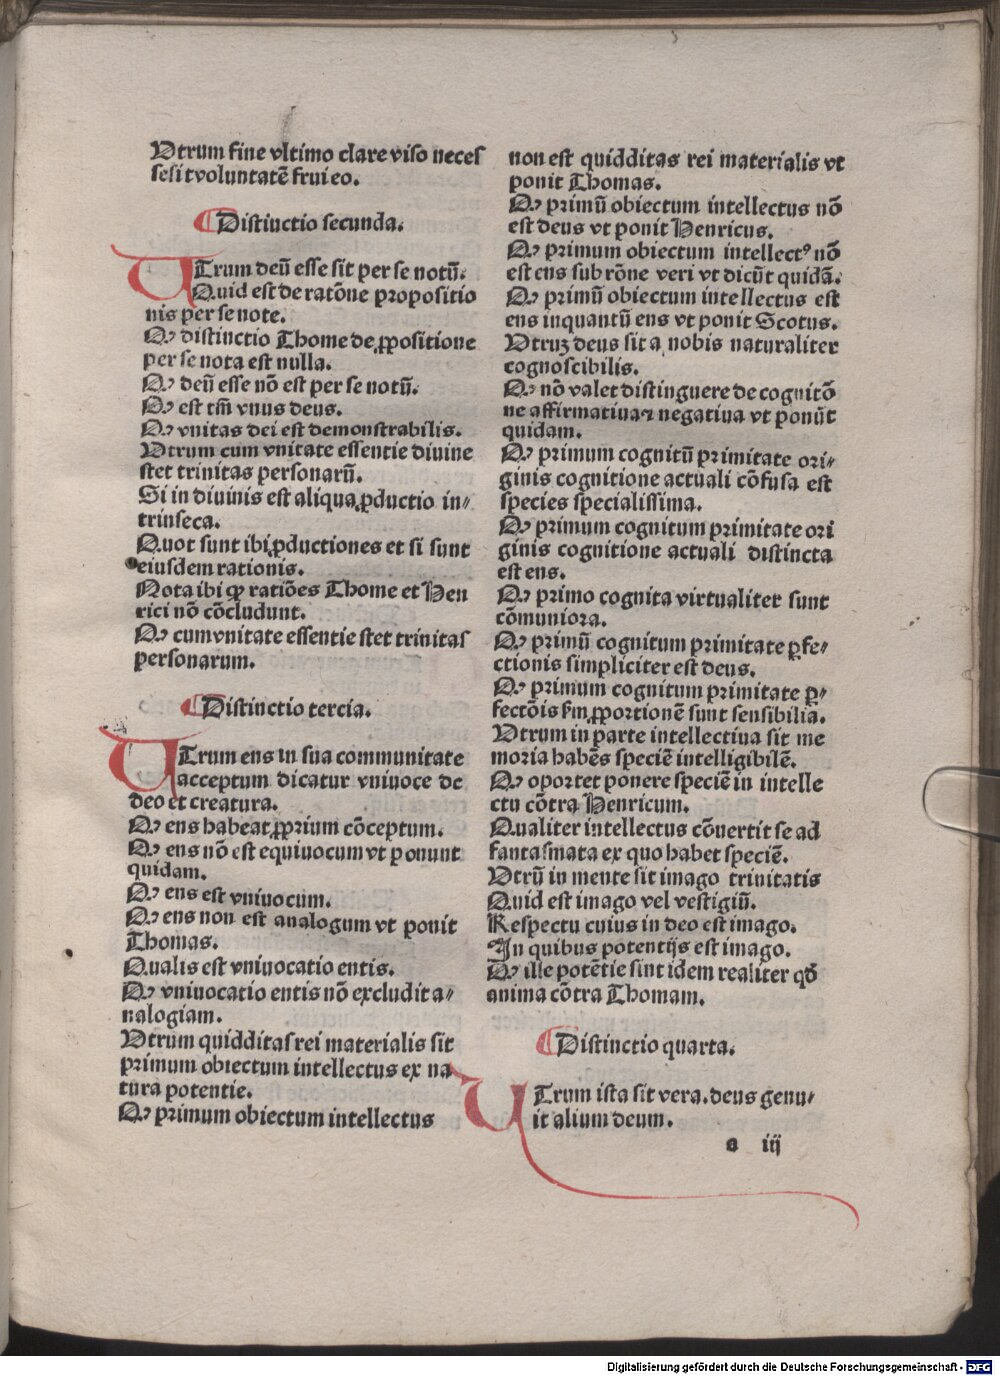 Utrum fine vltimo clare viso neces
se sit voluntatē frui eo.
Distinctio secunda.
UTrum deū esse sit per se notū.
Quid est de ratōne propositio
nis per se note.
Qꝫ distinctio Thome de ꝓpositione
per se nota est nulla.
Qꝫ deū esse nō est per se notū.
Qꝫ est tm̄ vnus deus.
Qꝫ vnitas dei est demonstrabilis.
Utrum cum vnitate essentie diuine
stet trinitas personarū.
Si in diuinis est aliqua ꝓductio in⸗
trinseca.
Quot sunt ibi ꝓductiones et si sunt
eiusdem rationis.
Nota ibi qꝛ ratiōes Thome et Hen
rici nō cōcludunt.
Qꝫ cum vnitate essentie stet trinitas
personarum.
Distinctio tercia.
UTrum ens in sua communitate
acceptum dicatur vniuoce de
deo et creatura.
Qꝫ ens habeat ꝓprium cōceptum.
Qꝫ ens nō est equiuocum vt ponunt
quidam.
Qꝫ ens est vniuocum.
Qꝫ ens non est analogum vt ponit
Thomas.
Qualis est vniuocatio entis.
Qꝫ vniuocatio entis nō excludit a⸗
nalogiam.
Utrum quidditas rei materialis sit
primum obiectum intellectus ex na
tura potentie.
Qꝫ primum obiectum intellectus
non est quidditas rei materialis vt
ponit Thomas.
Qꝫ primū obiectum intellectus nō
est deus vt ponit Henricus.
Qꝫ primum obiectum intellectꝰ nō
est ens sub rōne veri vt dicūt quidā.
Qꝫ primū obiectum intellectus est
ens inquantū ens vt ponit Scotus.
Utruꝫ deus sit a nobis naturaliter
cognoscibilis.
Qꝫ nō valet distinguere de cognitō
ne affirmatiua ⁊ negatiua vt ponūt
quidam.
Qꝫ primum cognitū primitate ori⸗
ginis cognitione actuali cōfusa est
species specialissima.
Qꝫ primum cognitum primitate ori
ginis cognitione actuali distincta
est ens.
Qꝫ primo cognita virtualiter sunt
cōmuniora.
Qꝫ primū cognitum primitate ꝑfe⸗
ctionis simpliciter est deus.
Qꝫ primum cognitum primitate ꝑ⸗
fectōis ẜm ꝓportionē sunt sensibilia.
Utrum in parte intellectiua sit me
moria habēs speciē intelligibilē.
Qꝫ oportet ponere speciē in intelle
ctu cōtra Henricum.
Qualiter intellectus cōuertit se ad
fantasmata ex quo habet speciē.
Utrū in mente sit imago trinitatis
Quid est imago vel vestigiū.
Respectu cuius in deo est imago.
In quibus potentijs est imago.
Qꝫ ille potētie sint idem realiter qđ
anima cōtra Thomam.
Distinctio quarta.
UTrum ista sit vera. deus genu⸗
it alium deum.
a iij
Digitalisierung gefördert durch die Deutsche Forschungsgemeinschaft - DFG